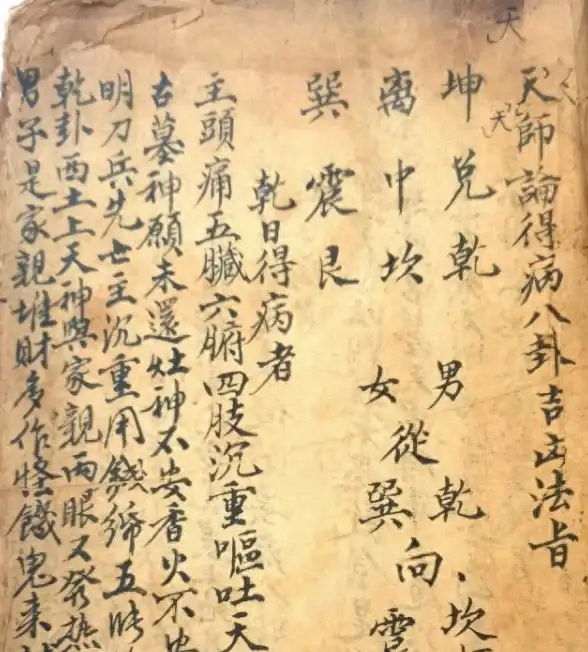 天師論得病八卦吉凶法旨
坤兑乾 男乾、坎
離中坎 女從巽向震
巽震艮
乾日得病者
主頭痛五臟六腑四肢沉重嘔吐天
古墓神願未還灶神不安香火不
明刀兵先世主沉重用錢
五
乾卦西土上天神與家親兩眼又發熱
男子是家親堆財多作怪饑鬼来
天
天